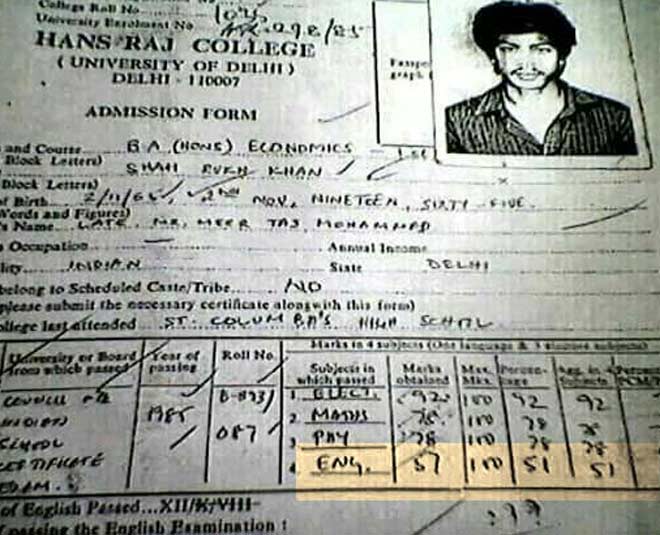 College Roll No
University Enrolment No
HANS RAJ COLLEGE
( UNIVERSITY OF DELHI )
DELHI - 110007
ADMISSION FORM
and Course B A (HONS) ECONOMICS
Block Letters)
SHAH RUKH KHAN
Block Letters)
of Birth 2/11/65, NOV, NINETEEN, SIXTY-FIVE.
Words and Figures)
's Name LATE. MR. MEER TAJ MOHAMMED
Occupation Annual Income
INDIAN State DELHI
belong to Scheduled Caste/Tribe NO
please submit the necessary certificate alongwith this form)
ollege last attended ST. COLUMBA'S HIGH SCHOOL
University or Board from which passed Year of passing Roll No. Marks in 4 subjects (One language &
Subjects in which passed Marks obtained Max. Mks. Percen- tage
COUNCIL 1985 1 ELECT. 92 100 92 92
INDIAN 2 MATHS 78 100 78 78
SCHOOL 087 3 PHY 78 100 78 78
CERTIFICATE 4 ENG. 51 100 51 51
EXAM.
of English Passed...XII/X/VIII
passing the English Examination :